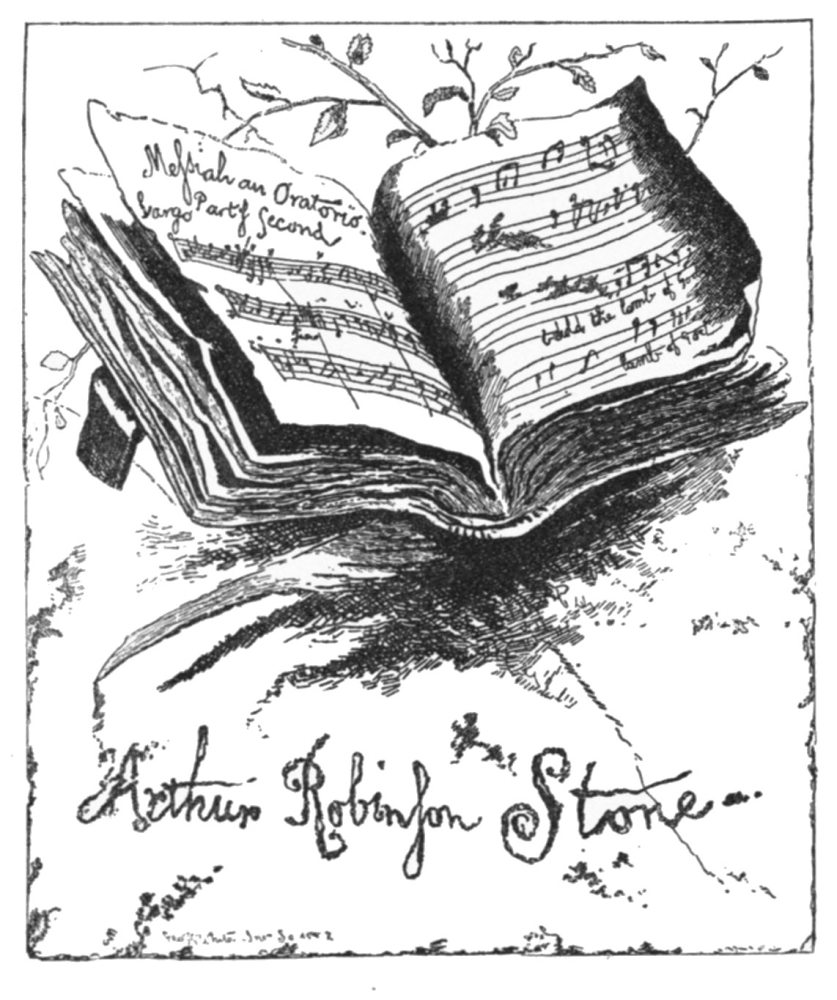 Meſsiah an Oratorio.
Largo Part ye Second
behold the lamb of God
lamb of God
Arthur Robinſon Stone